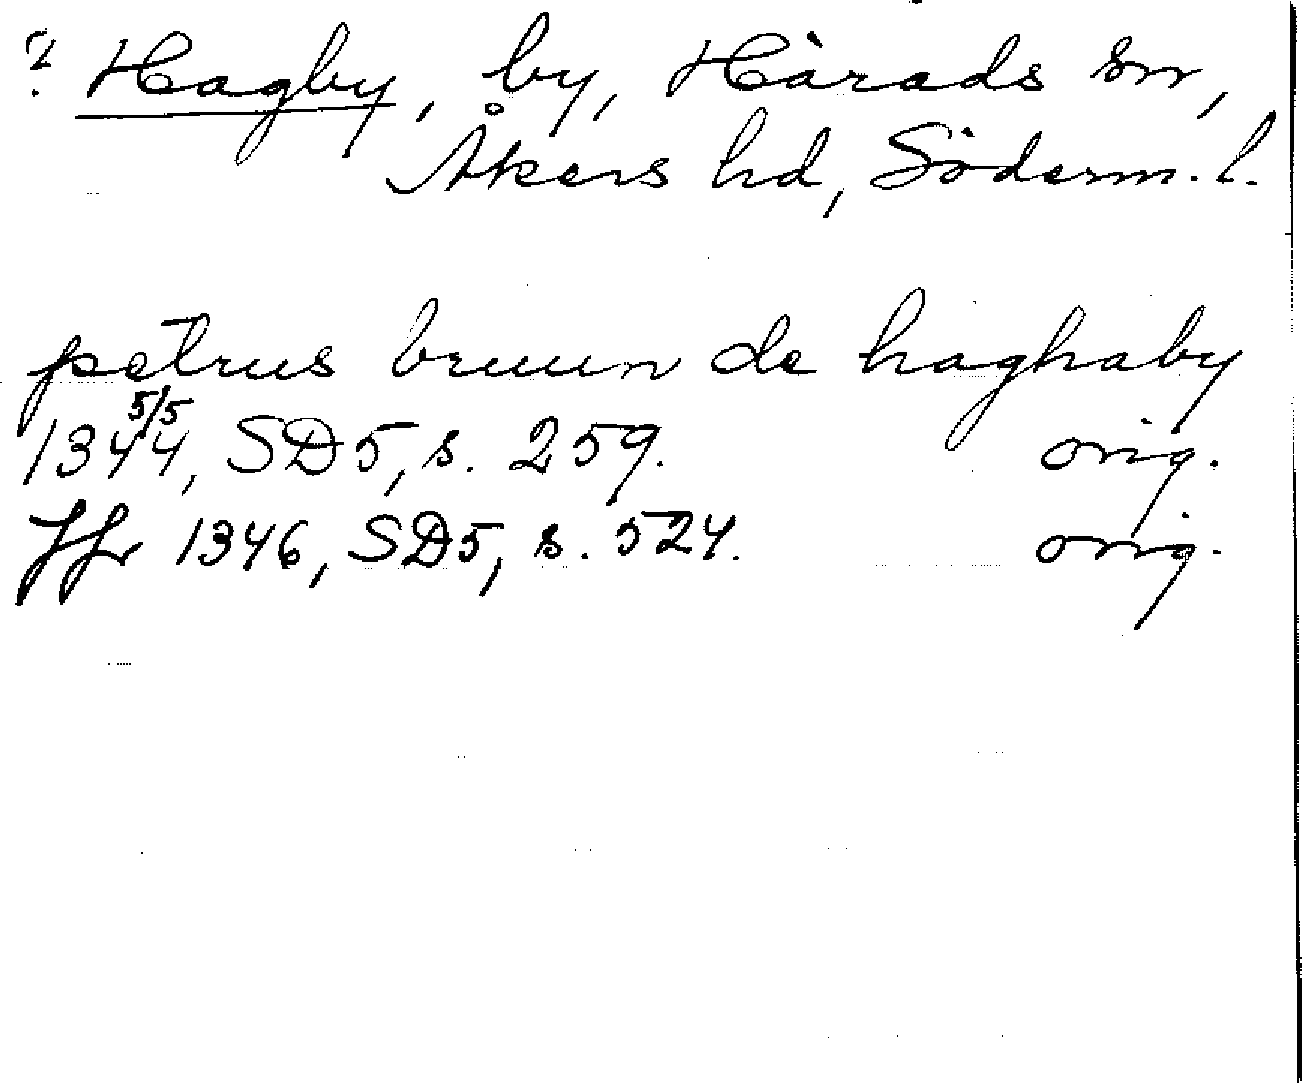 ? Hagby, by, Hårads sn,
Åkers hd, Söderm. l.
petrus bruun de haghaby
1344 5/5, SD5, s. 259. orig.
Jfr 1346, SD5, s. 524. orig.